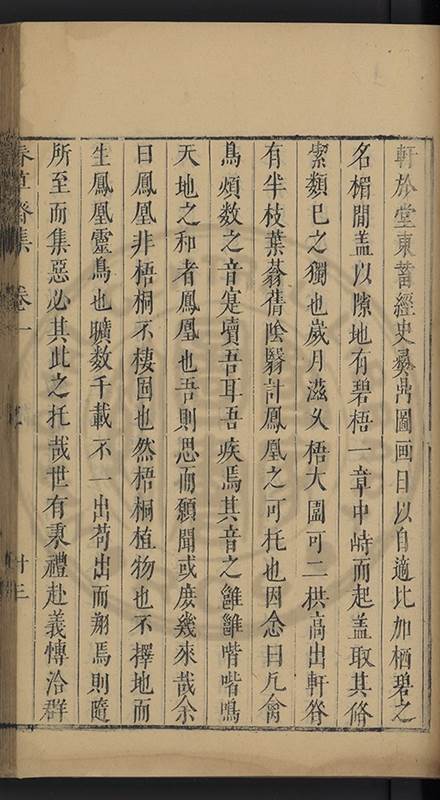 軒於堂東蓄經史彝鼎圖画日以自適比加栖碧之
名楣間盖以隙地有碧梧一章中峙而起盖取其脩
絜類已之獨也歲月滋久梧大圍可二拱高出軒脊
有半枝葉蓊蒨陰翳計鳳凰之可托也因念曰凢禽
鳥煩数之音寔瀆吾耳吾疾焉其音之雝雝喈喈鳴
天地之和者鳳凰也吾則思而願聞或庻幾來哉余
曰鳳凰非梧桐不棲固也然梧桐植物也不擇地而
生鳳凰靈鳥也曠数千載不一出苟出而翔焉則隨
所至而集惡必其此之托哉世有秉禮赴義愽洽群
春草齋集 卷一 十三